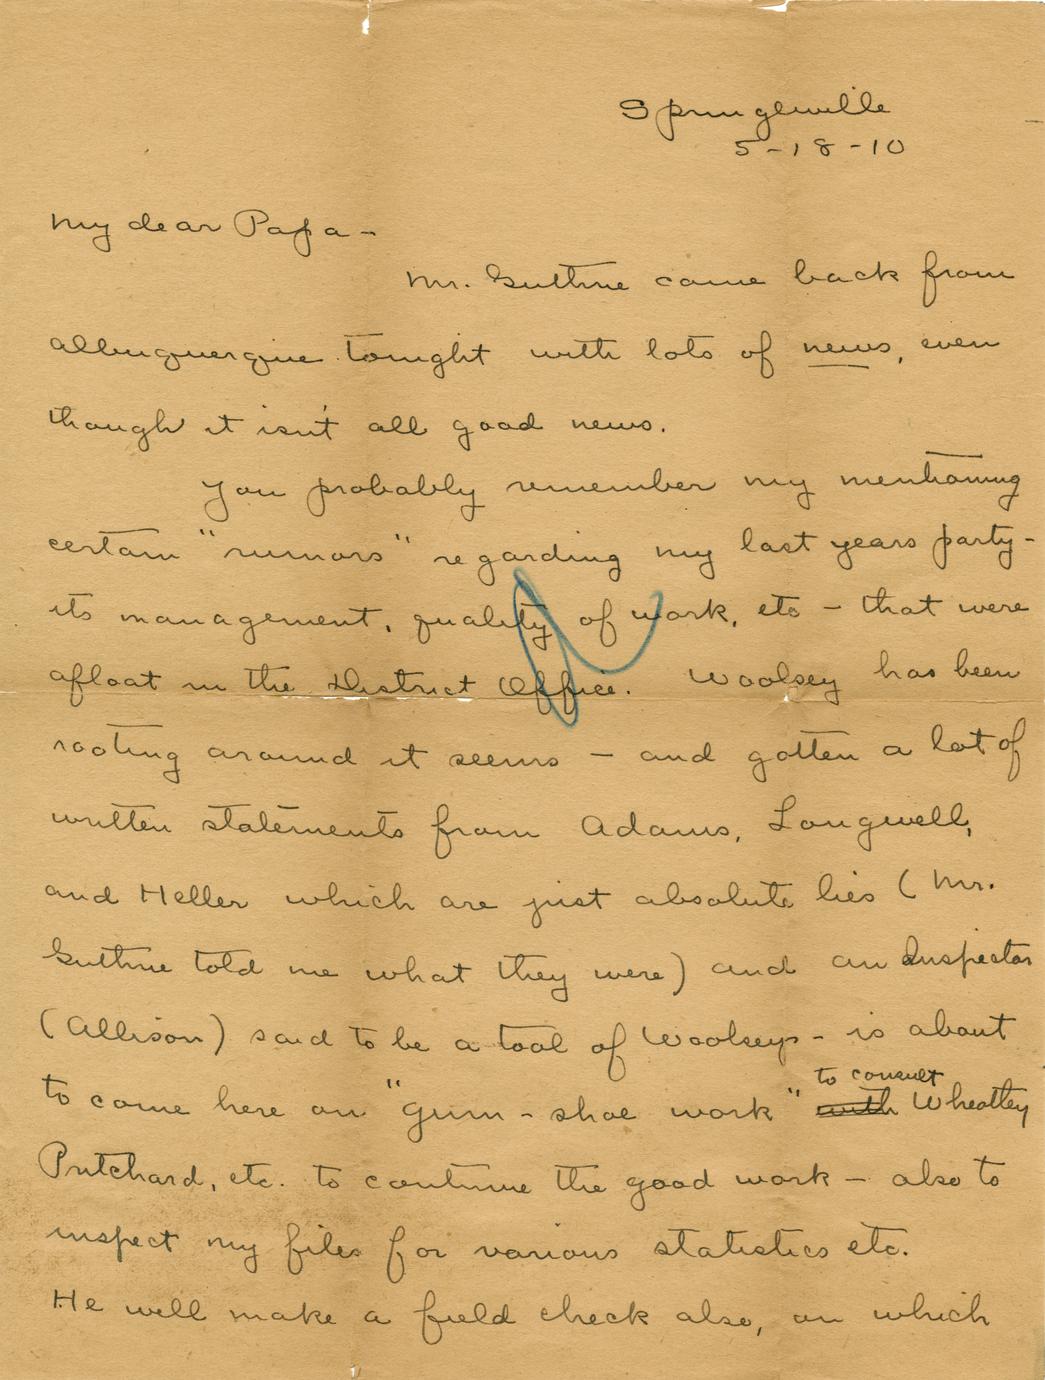 Springerville
5-18-10
My dear Papa -
Mr. Guthrie came back from
Albuquerque tonight with lots of news, even
though it isn't all good news.
You probably remember my mentioning
certain "rumors" regarding my last years party -
its management, quality of work, etc - that were
afloat in the District Office. Woolsey has been
rooting around it seems - and gotten a lot of
written statements from Adams, Longwell,
and Heller which are just absolute lies (Mr.
Guthrie told me what they were) and an Inspector
(Allison) said to be a tool of Woolseys - is about
to consult
to come here on "gum-shoe work" with Wheatley
Pritchard, etc. to continue the good work - also to
inspect my files for various statistics etc.
He will make a field check also, on which